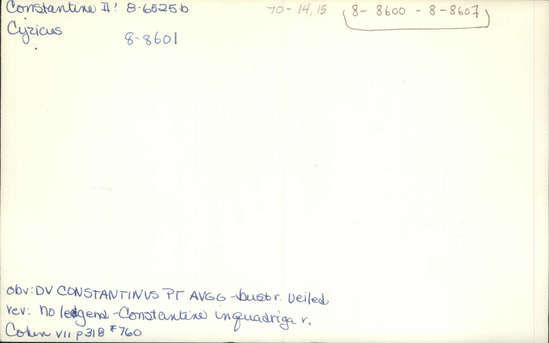 Constantine II? 8-6525b 70-14,15 8-8600 - 8-8607
Cyzicus 8-8601
obv: DV CONSTANTINVS PT AVGG - bust r. veiled
rev: No legend - Constantine in quadriga r.
Cohen VII p318 #760